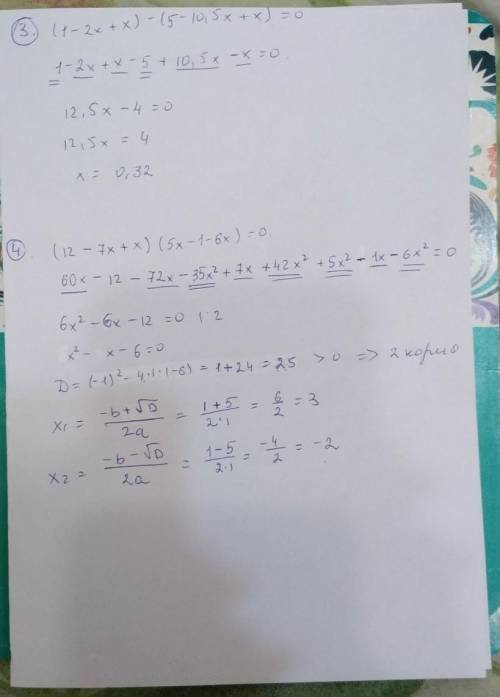 3. (1-2x+x)-(5-10,5x+x)=0
1-2x+x-5+10,5x-x=0
12,5x-4=0
12,5x=4
x=0,32
4. (12-7x+x)(5x-1-6x)=0
60x-12-72x-35x²+7x+42x²+5x²-1x-6x²=0
6x²-6x-12=0 |:2
x²-x-6=0
D=(-1)²-4·1·(-6)=1+24=25 >0 => 2 корню
x₁ = (-b+√D)/2a = (1+5)/2·1 = 6/2 = 3
x₂ = (-b-√D)/2a = (1-5)/2·1 = -4/2 = -2